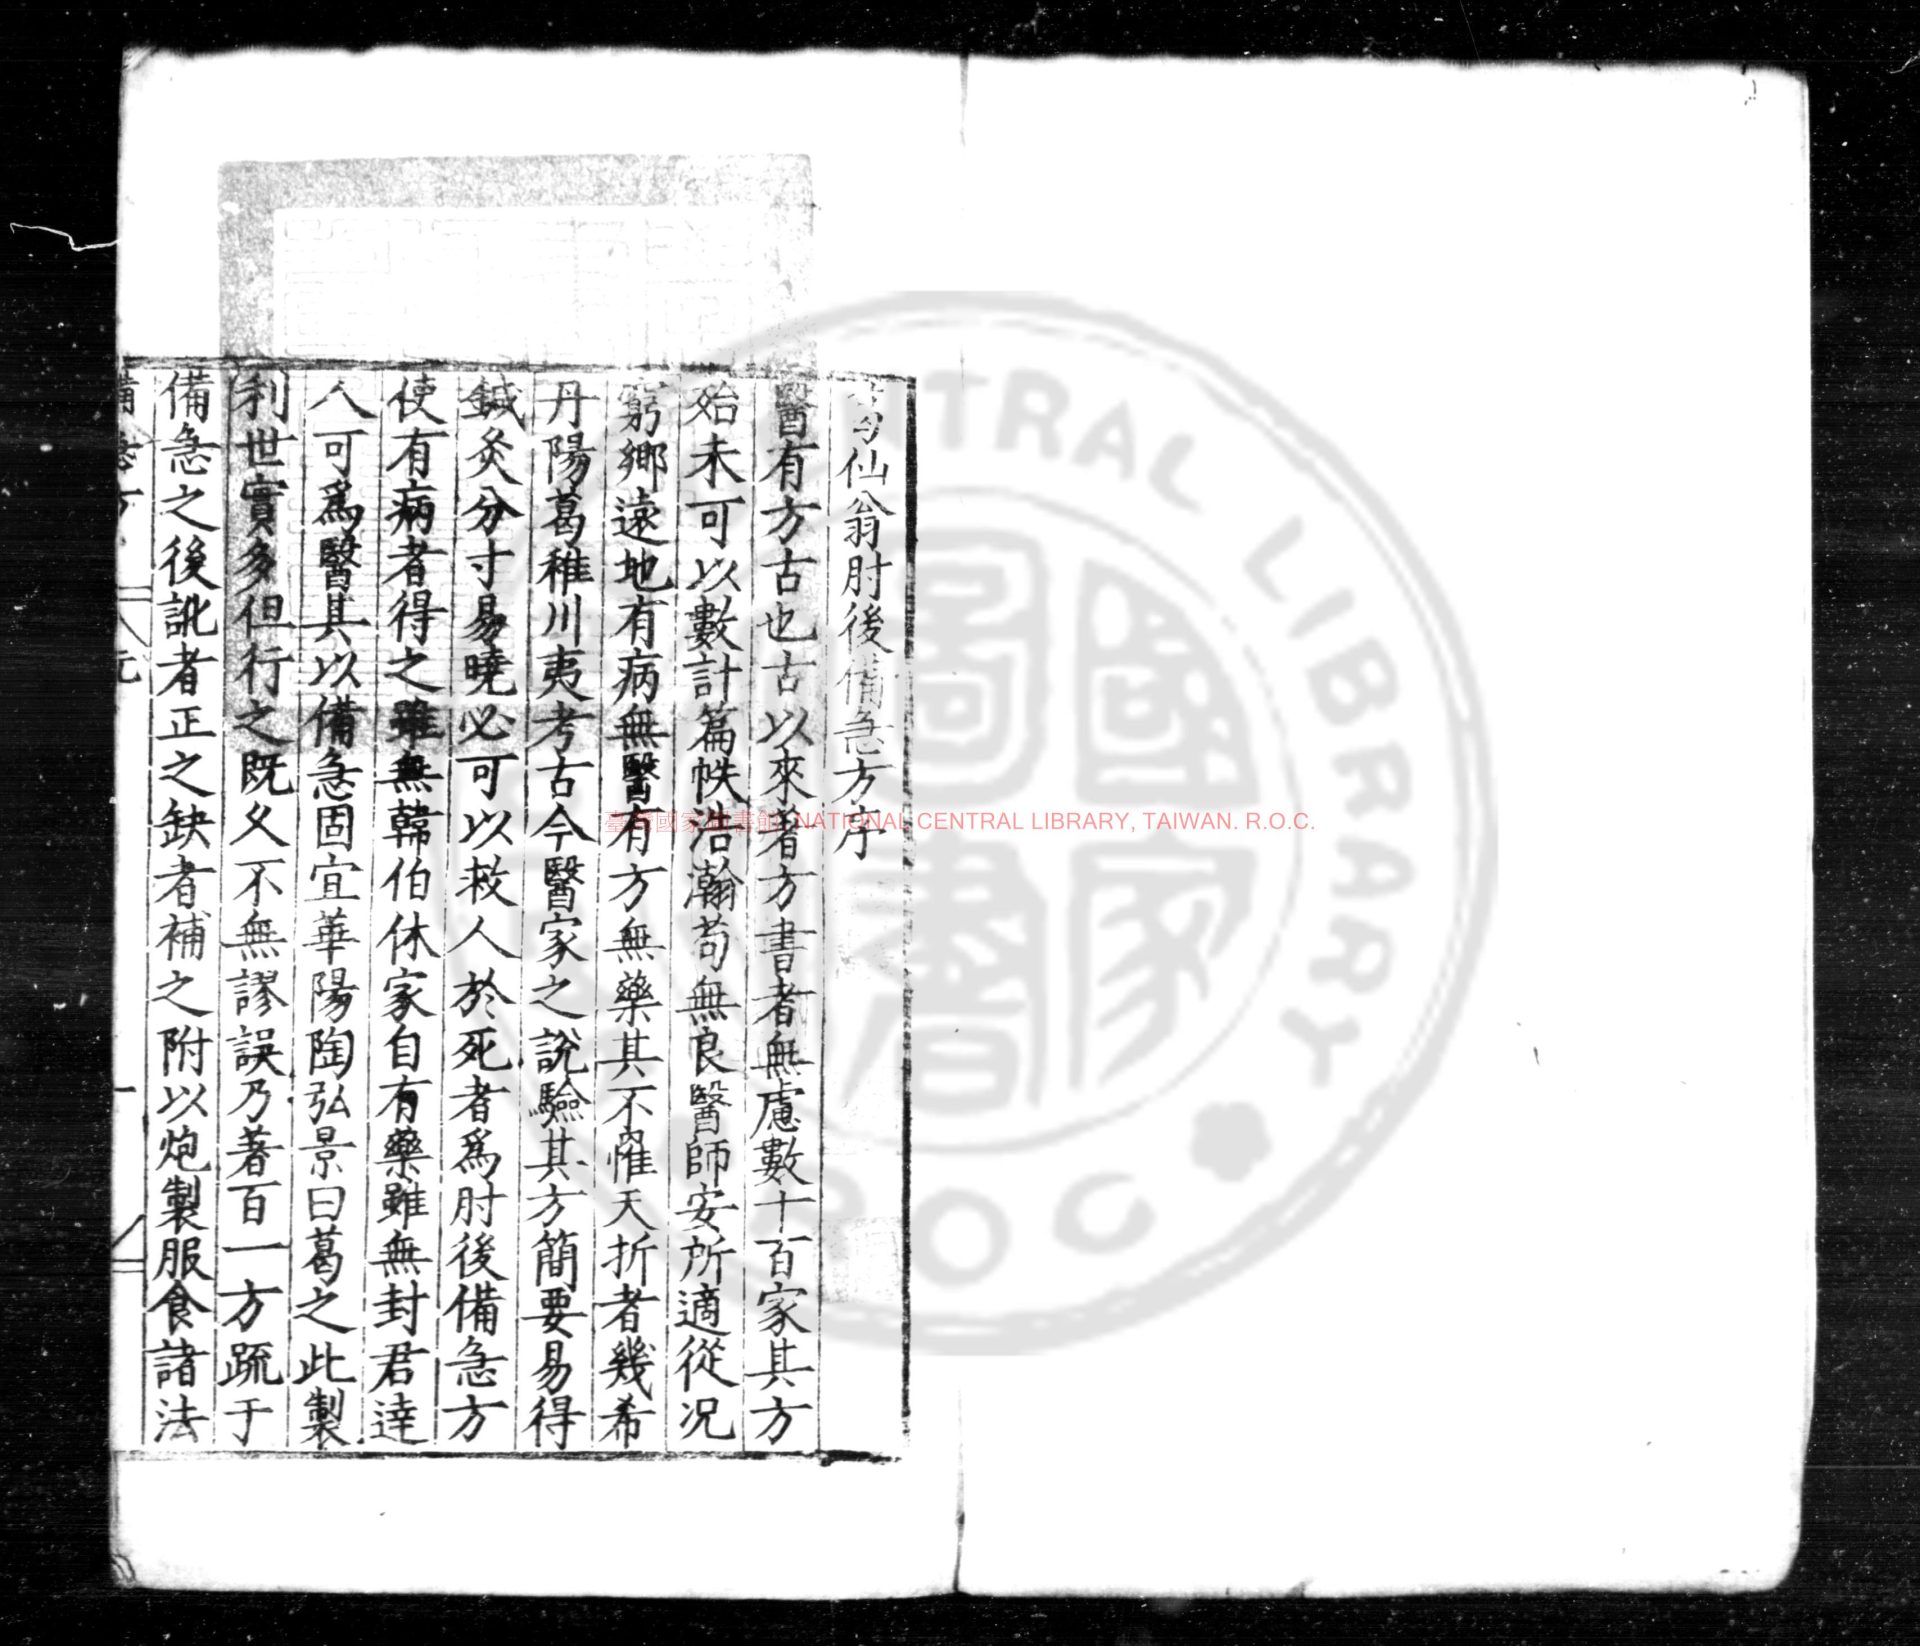 葛仙翁肘後備急方序
醫有方古也古以來著方書者無慮數十百家其方
殆未可以數計篇帙浩瀚苟無良醫師安所適從况
窮鄉遠地有病無醫有方無藥其不罹夭折者幾希
丹陽葛稚川夷考古今醫家之說驗其方簡要易得
鍼灸分寸易曉必可以救人於死者爲肘後備急方
使有病者得之雖無韓伯休家自有藥雖無封君逹
人可爲醫其以備急固宜華陽陶弘景曰葛之此製
利世實多但行之既乆不無謬誤乃著百一方疏于
備急之後訛者正之缺者補之附以炮製服食諸法
臺灣國家圖書館, NATIONAL CENTRAL LIBRARY, TAIWAN. R.O.C.
CENTRAL LIBRARY
R O C
國家圖書